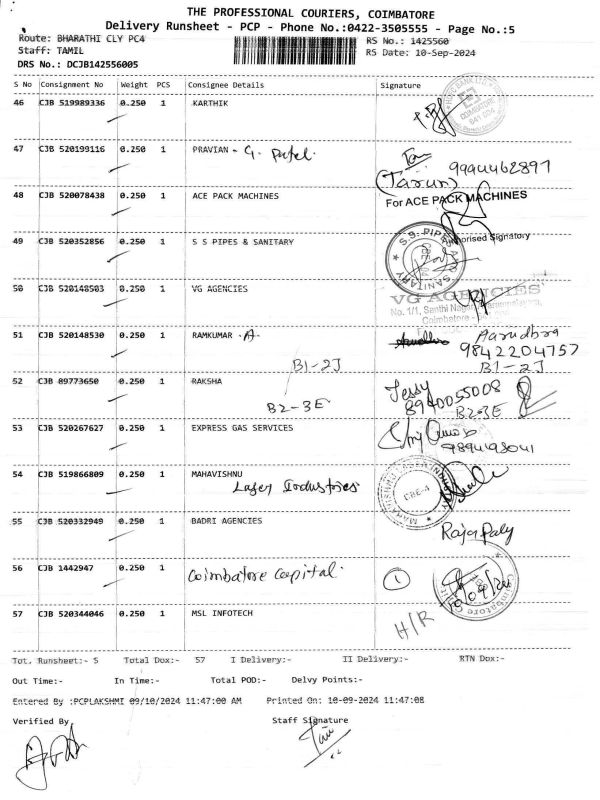 THE PROFESSIONAL COURIERS, COIMBATORE
Delivery Runsheet - PCP - Phone No.:0422-3505555 - Page No.:5
Route: BHARATHI CLY PC4
RS No.: 1425560
Staff: TAMIL
RS Date: 10-Sep-2024
DRS No.: DCJB142556005
S No Consignment No Weight PCS Consignee Details Signature
46 CJB 519989336 0.250 1 KARTHIK
HDFC BANK LTD
COIMBATORE
641 004
47 CJB 520199116 0.250 1 PRAVIAN - G. Patel.
9994462897
(Tarun)
48 CJB 520078438 0.250 1 ACE PACK MACHINES
For ACE PACK MACHINES
Authorised Signatory
49 CJB 520352856 0.250 1 S S PIPES & SANITARY
S.S. PIPES AND SANITARY
CBE-04
50 CJB 520148503 0.250 1 VG AGENCIES
VG AGENCIES
No. 1/1, Santhi Nagar,
Coimbatore -
51 CJB 520148530 0.250 1 RAMKUMAR - A
Aarudhra
9842204757
B1-2J
B1-2J
52 CJB 89773650 0.250 1 RAKSHA
B2-3E
Jessy
8940055008
B2-3E
53 CJB 520267627 0.250 1 EXPRESS GAS SERVICES
9894498041
54 CJB 519866809 0.250 1 MAHAVISHNU
Laser Industries
MAHAVISHNU LASER INDUSTRIES
CBE-4
55 CJB 520332949 0.250 1 BADRI AGENCIES
56 CJB 1442947 0.250 1 Coimbatore Capital.
1
Coimbatore
57 CJB 520344046 0.250 1 MSL INFOTECH
H/R
Tot. Runsheet:- 5 Total Dox:- 57 I Delivery:- II Delivery:- RTN Dox:-
Out Time:- In Time:- Total POD:- Delvy Points:-
Entered By :PCPLAKSHMI 09/10/2024 11:47:00 AM Printed On: 10-09-2024 11:47:08
Verified By
Staff Signature